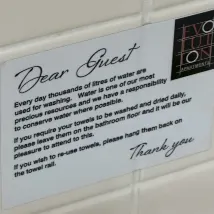 Dear Guest
Every day thousands of litres of water are
used for washing. Water is one of our most
precious resources and we have a responsibility
to conserve water where possible.
If you require your towels to be washed and dried daily,
please leave them on the bathroom floor and it will be our
pleasure to attend to this.
If you wish to re-use towels, please hang them back on
the towel rail.
Thank you
EVO
LUTI
ON